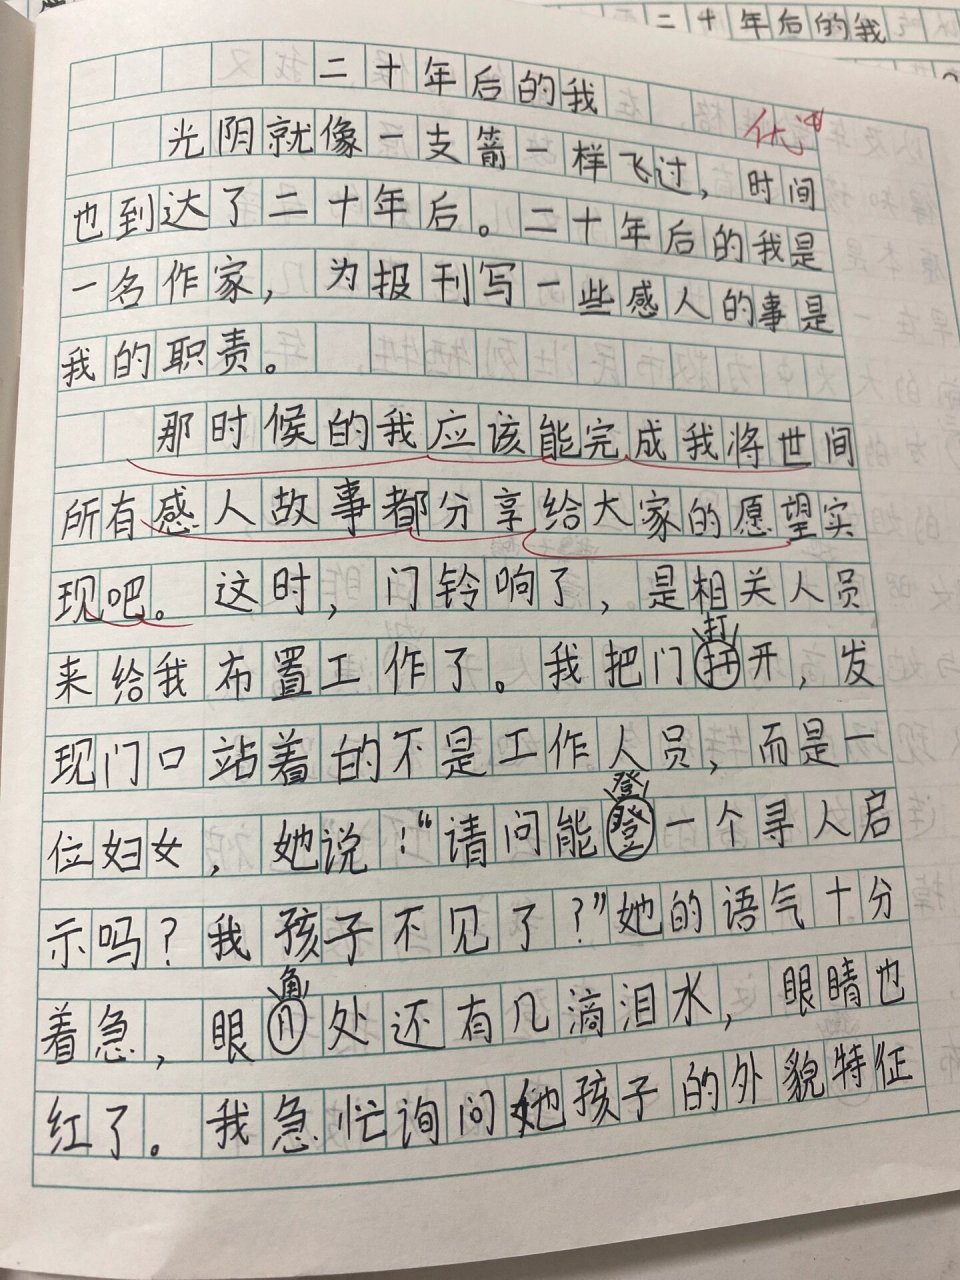 二十年后的我
二十年后的我
优
光阴就像一支箭一样飞过，时间
也到达了二十年后。二十年后的我是
一名作家，为报刊写一些感人的事是
我的职责。
那时候的我应该能完成我将世间
所有感人故事都分享给大家的愿望实
现吧。这时，门铃响了，是相关人员
来给我布置工作了。我把门打开，发
现门口站着的不是工作人员，而是一
位妇女，她说：“请问能登一个寻人启
示吗？我孩子不见了？”她的语气十分
着急，眼角处还有几滴泪水，眼睛也
红了。我急忙询问她孩子的外貌特征